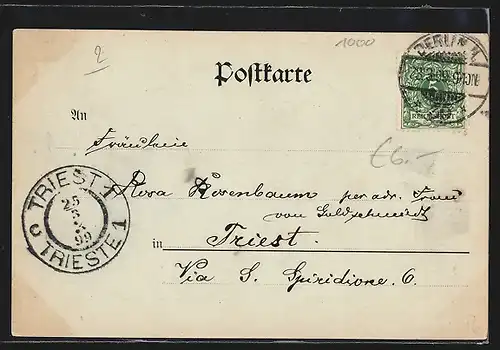 2
1000
BERLIN W.
Postkarte
REICHSPOST
An
Fräulein
€6.-
Rosa Rosenbaum per adr. Frau
von Goldschmidt
in Triest.
Via S. Spiridione. 6.
TRIEST 1
25
3
99
C TRIESTE 1